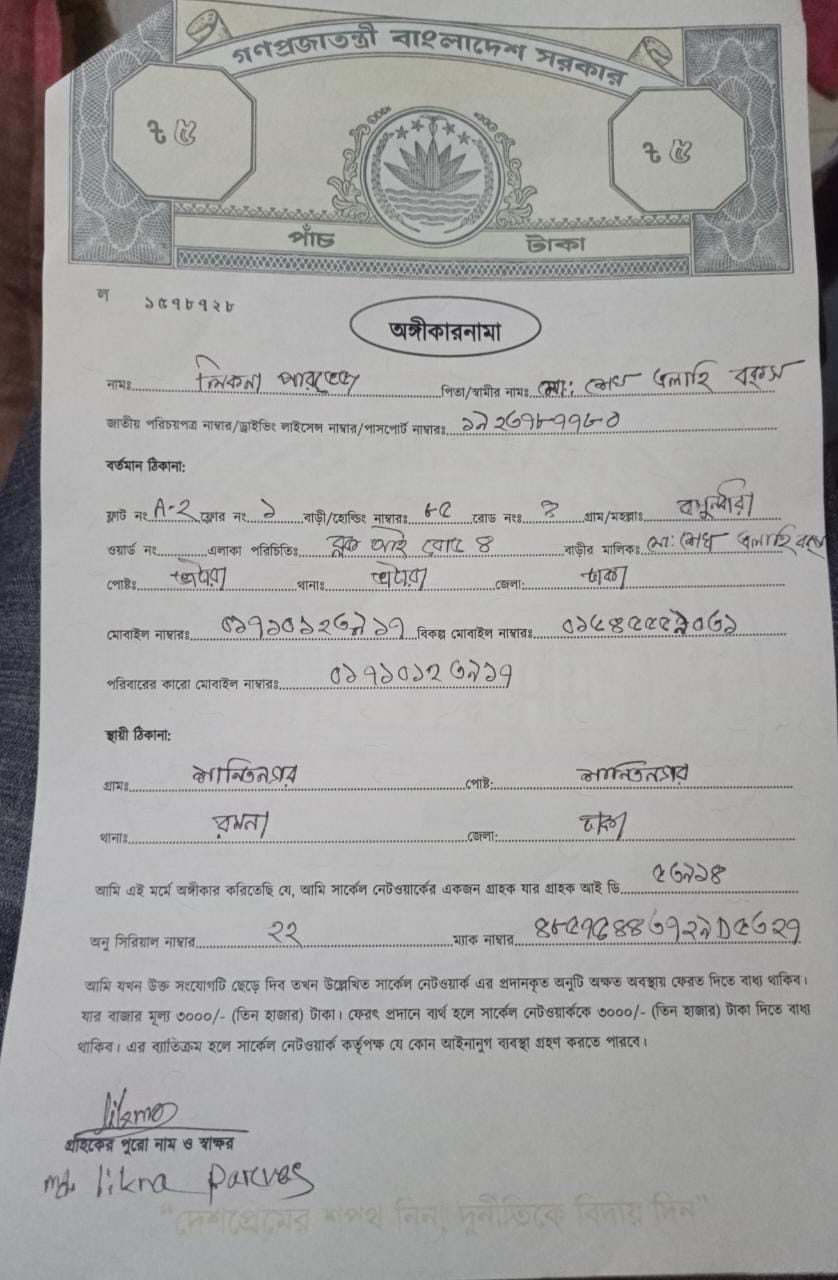 গণপ্রজাতন্ত্রী বাংলাদেশ সরকার
৳ ৫ ৳ ৫
পাঁচ টাকা
ল ১৫৭৮৭২৮
অঙ্গীকারনামা
নামঃ লিকনা পারভেজ পিতা/স্বামীর নামঃ মো: শেখ এলাহি বকস
জাতীয় পরিচয়পত্র নাম্বার/ড্রাইভিং লাইসেন্স নাম্বার/পাসপোর্ট নাম্বারঃ
বর্তমান ঠিকানা:
ফ্লাট নং A-2 ফ্লোর নং ১ বাড়ী/হোল্ডিং নাম্বারঃ রোড নংঃ ৪ গ্রাম/মহল্লাঃ
ওয়ার্ড নং এলাকা পরিচিতিঃ ব্লক আই রোড ৪ বাড়ীর মালিকঃ মো: শেখ এলাহি বকস
পোষ্টঃ থানাঃ জেলা: ঢাকা
মোবাইল নাম্বারঃ ০১৭১০১২৬৯১৭ বিকল্প মোবাইল নাম্বারঃ
পরিবারের কারো মোবাইল নাম্বারঃ ০১৭১০১২৬৯১৭
স্থায়ী ঠিকানা:
গ্রামঃ শান্তিনগর পোষ্ট: শান্তিনগর
থানাঃ রমনা জেলা: ঢাকা
আমি এই মর্মে অঙ্গীকার করিতেছি যে, আমি সার্কেল নেটওয়ার্কের একজন গ্রাহক যার গ্রাহক আই ডি ৫৬৯১৪
অনু সিরিয়াল নাম্বার ২২ ম্যাক নাম্বার
আমি যখন উক্ত সংযোগটি ছেড়ে দিব তখন উল্লেখিত সার্কেল নেটওয়ার্ক এর প্রদানকৃত অনুটি অক্ষত অবস্থায় ফেরত দিতে বাধ্য থাকিব।
যার বাজার মূল্য ৩০০০/- (তিন হাজার) টাকা। ফেরৎ প্রদানে ব্যর্থ হলে সার্কেল নেটওয়ার্ককে ৩০০০/- (তিন হাজার) টাকা দিতে বাধ্য
থাকিব। এর ব্যতিক্রম হলে সার্কেল নেটওয়ার্ক কর্তৃপক্ষ যে কোন আইনানুগ ব্যবস্থা গ্রহণ করতে পারবে।
likna
গ্রাহকের পুরো নাম ও স্বাক্ষর
md. likna Parves
“দেশপ্রেমের শপথ নিন, দুর্নীতিকে বিদায় দিন”